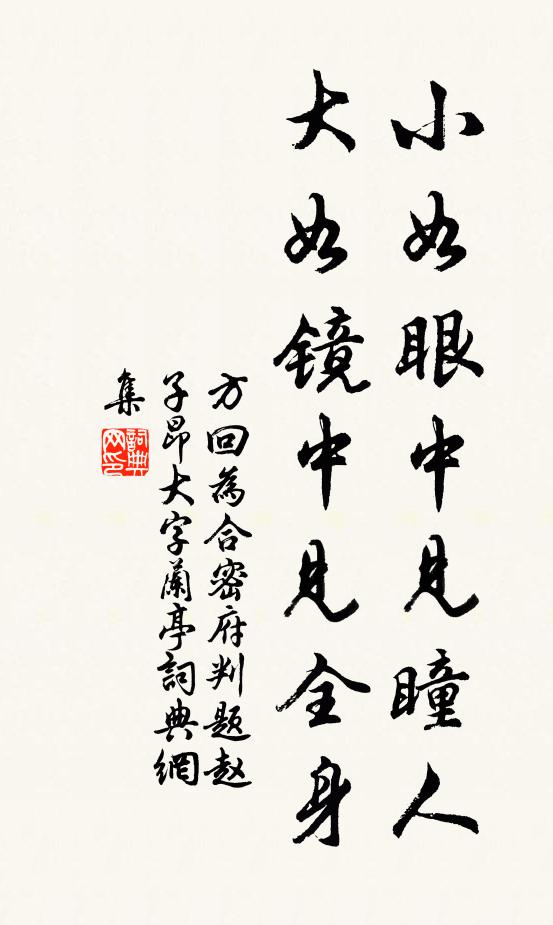 小如眼中見瞳人
大如镜中見全身
方回為合密府判题赵
子昂大字蘭亭詞典網
集
詞典网印